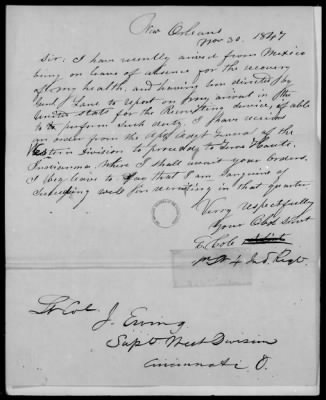 New Orleans
Nov 30. 1847
Sir: I have recently arived from Mexico
being on leave of absence for the recovery
of my health, and having been directed by
Genl J Lane to report on my arrival in the
United States for the Recruiting service, if able
to perform such duty. I have received
an order from the Adjt General of the
Western Division to proceed to Terre Haute,
Indianna. Where I shall await your orders.
I beg leave to say that I am sanguine of
succeeding well for recruiting in that quarter
Very respectfully
your Obdt Servt
E. Cole
4 Ind. Regt
Lt Col J. Ewing
Supt West Division
Cincinnati O.